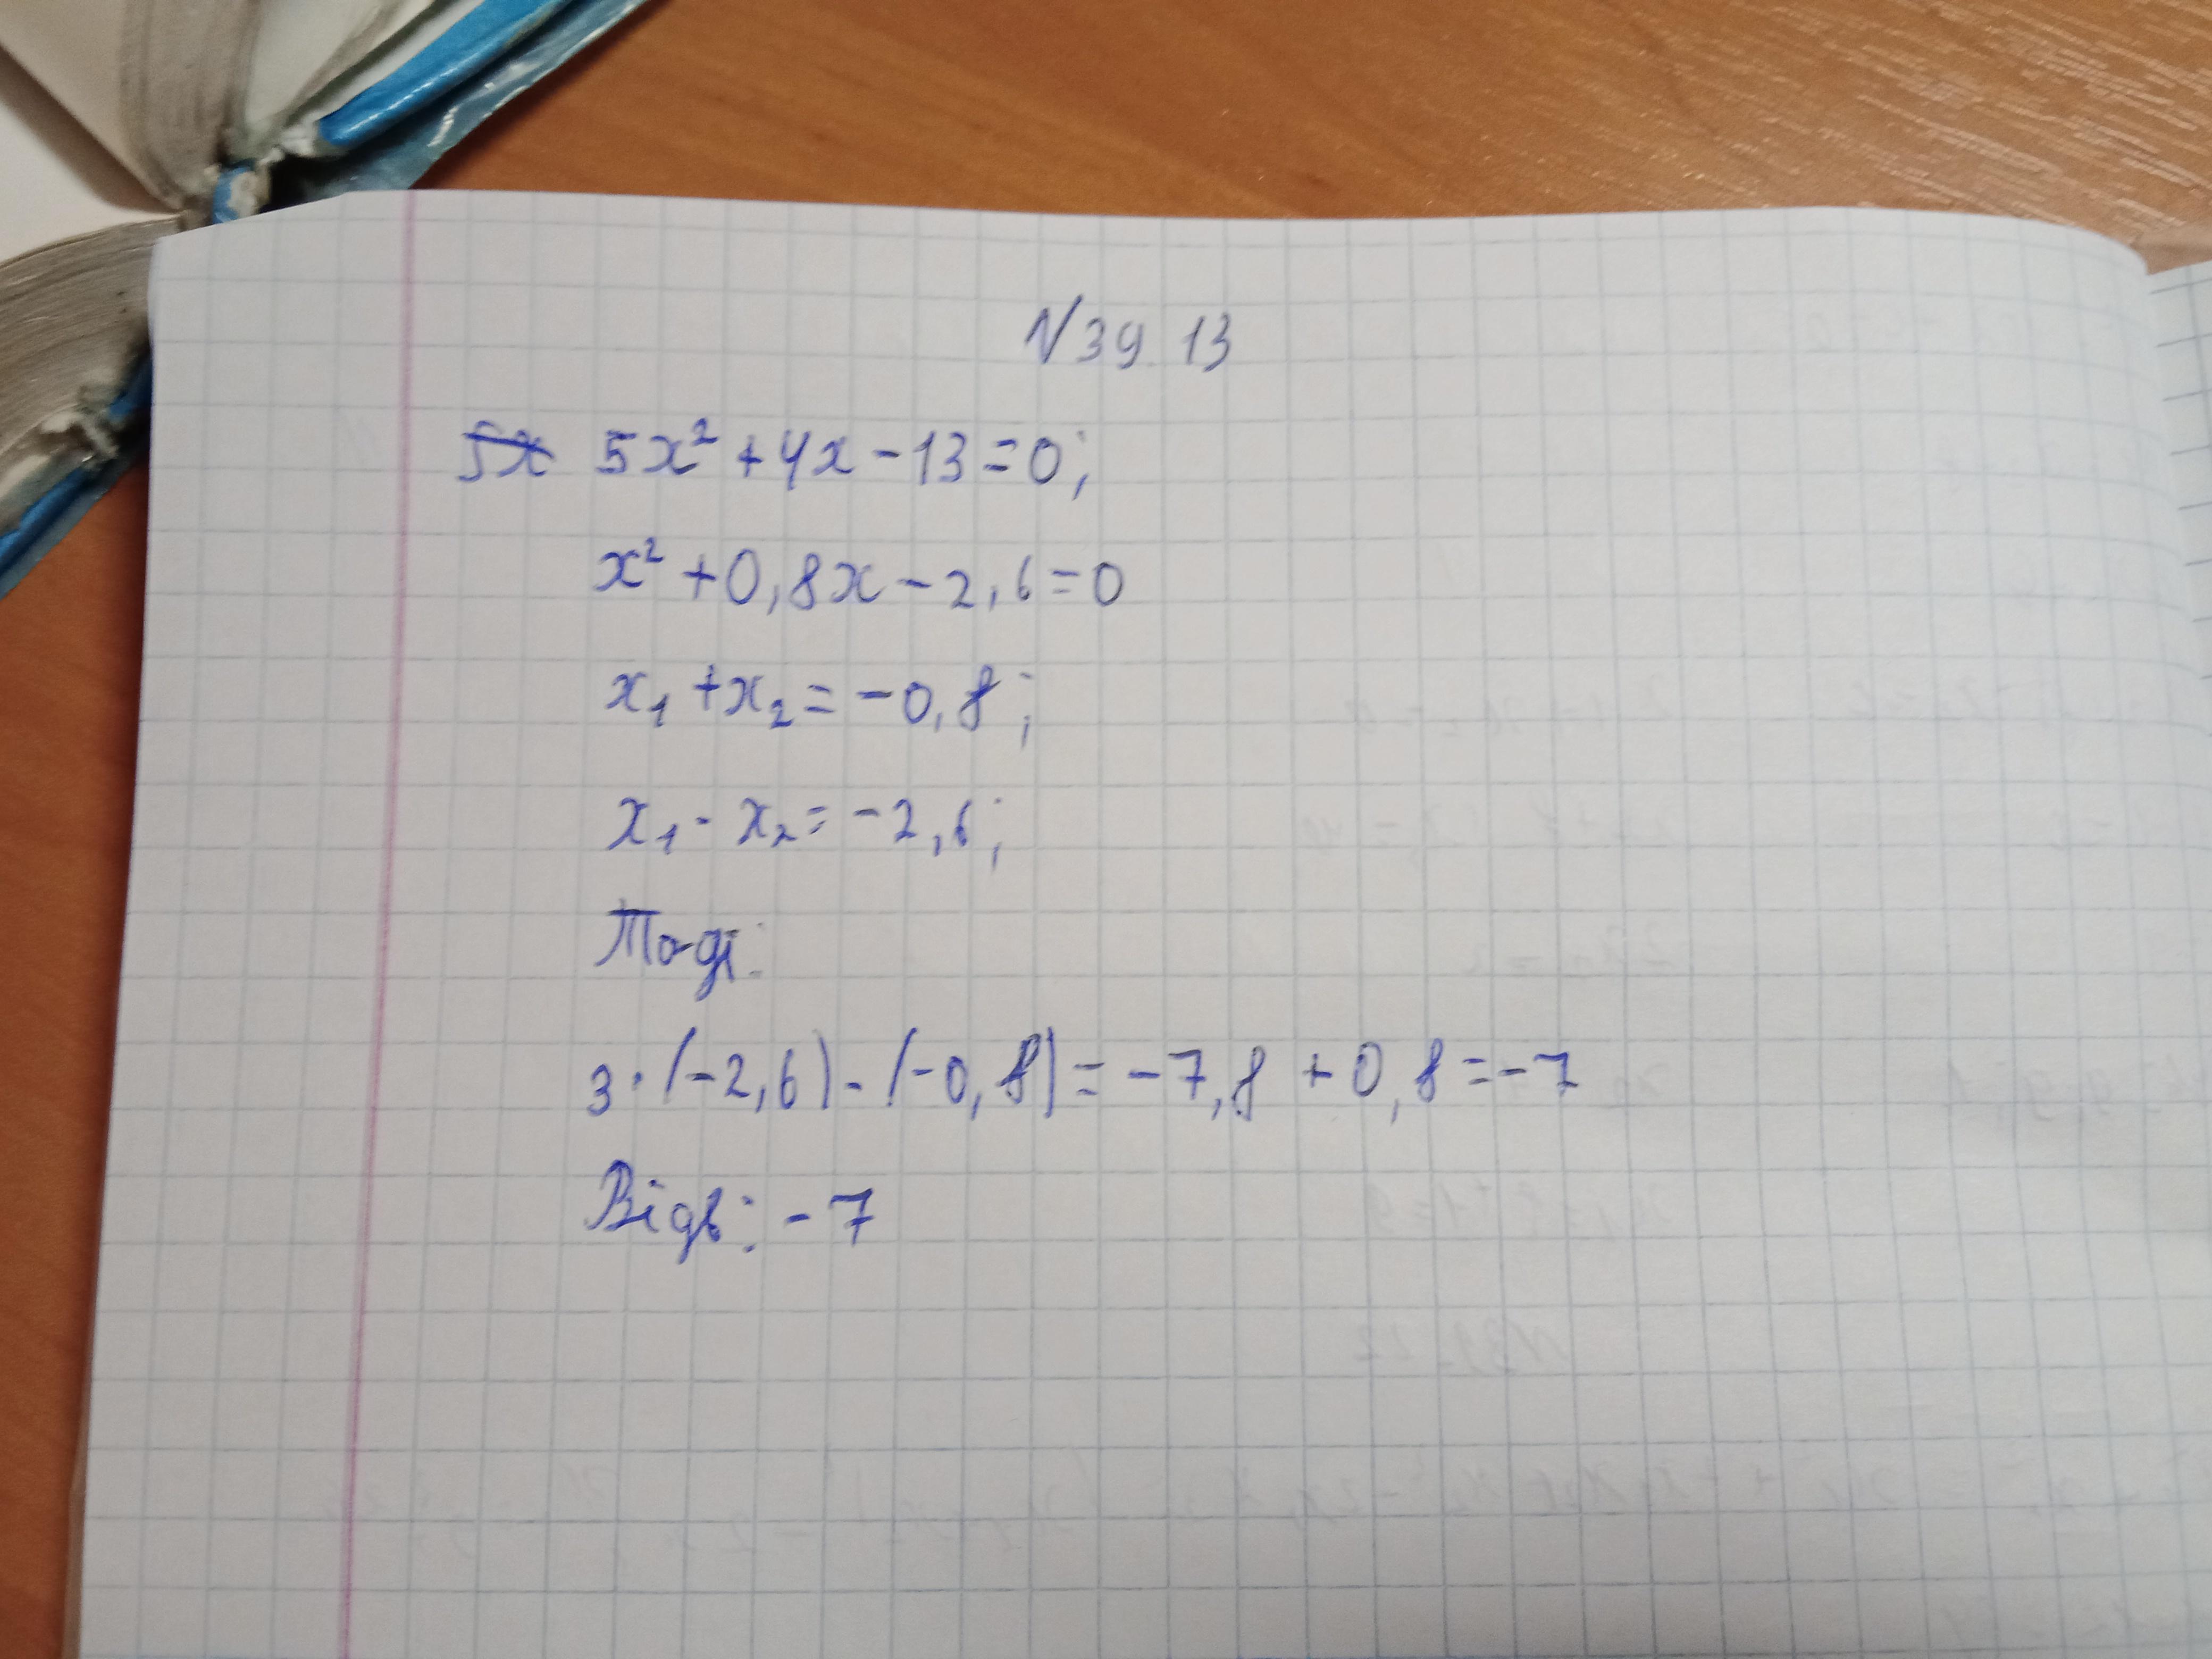 №39 13
5x 5x² + 4x - 13 = 0;
x² + 0,8x - 2,6 = 0
x₁ + x₂ = -0,8;
x₁ · x₂ = -2,6;
Тоді:
3 · (-2,6) - (-0,8) = -7,8 + 0,8 = -7
Відв: -7